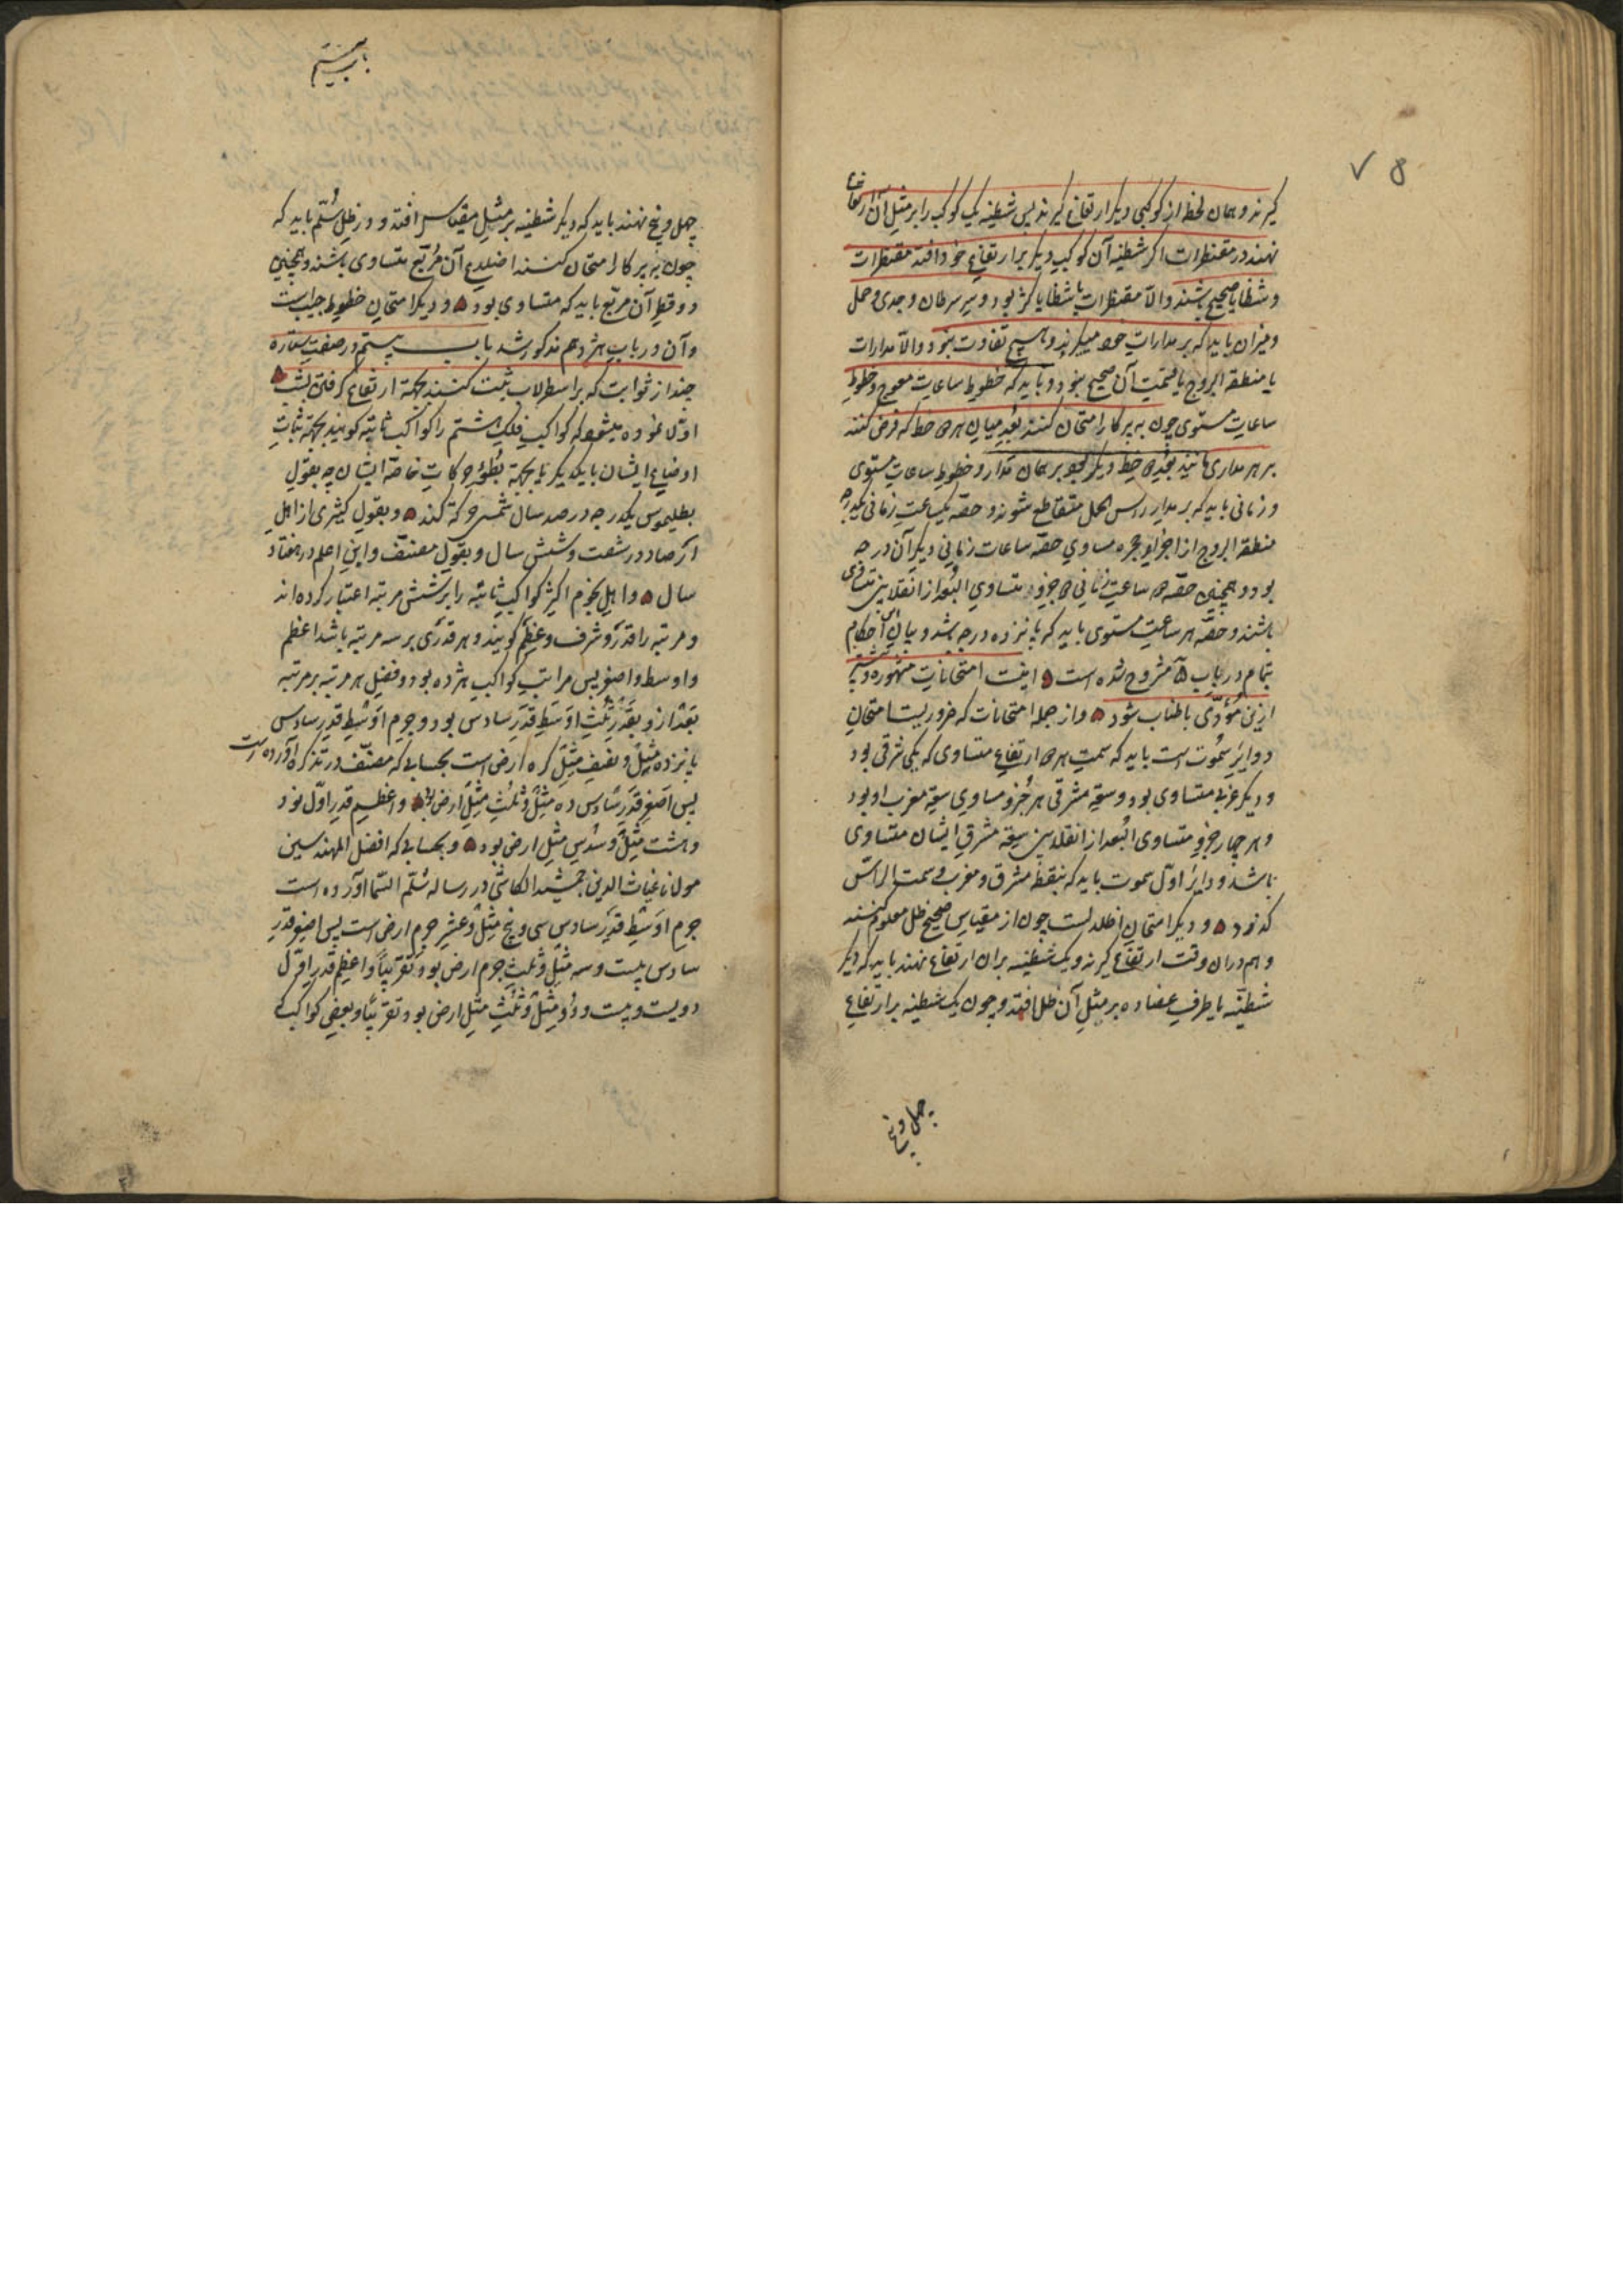 ۷ ۵
گیرند و همان لحظه از کوکبی دیگر ارتفاع گیرند پس شظیه یک کوکب را بر مثل آن ارتفاع
نهند در مقنطرات اگر شظیه آن کوکب دیگر بر ارتفاع خود افتد مقنطرات
و شظایا صحیح باشند والا مقنطرات یا شظایا کژ بود و سر سرطان و جدی و حمل
و میزان باید که بر مدارات خود میگردند و هیچ تفاوت نبود والا مدارات
یا منطقة البروج یا قسمت آن صحیح نبود و باید که خطوط ساعات معوج و خطوط
ساعات مستوی چون به پرکار امتحان کنند بعد میان هر دو خط که فرض کنند
بر هر مداری مانند بعد دو خط دیگر بود بر همان مدار و خطوط ساعات مستوی
و زمانی باید که بر مدار راس الحمل متقاطع شوند و حصه یکساعت زمانی یکدرجه
منطقة البروج از اجزاء حجره مساوی حصه ساعات زمانی دیگر آن درجه
بود و همچنین حصه دو ساعت زمانی دو جزو متساوی البعد از انقلابین متساوی
باشند و حصه هر ساعت مستوی باید که پانزده درجه باشد و بیان این احکام
بتمام در باب مشروح شده است اینست امتحانات مشهوره و بیشتر
ازین مؤدی باطناب شود و از جمله امتحانات که ضروریست امتحان
دوایر سموت است باید که سمت هر دو ارتفاع متساوی که یکی شرقی بود
و دیگر غربی متساوی بود و سعة مشرقی هر جزو مساوی سعة مغرب او بود
و هر چهار جزو متساوی البعد از انقلابین سعة مشرق ایشان متساوی
باشد و دایره اول سموت باید که بنقطه مشرق و مغرب و سمت الراس
گذرد و دیگر امتحان اظلالست چون از مقیاس صحیح ظل معلوم کنند
و هم دران وقت ارتفاع گیرند و یک شظیه بران ارتفاع نهند باید که دیگر
شظیه یا طرف عضاده بر مثل آن ظل افتد و چون یک شظیه بر ارتفاع
چهل و پنج
باب بیستم
چهل و پنج نهند باید که دیگر شظیه بر مثل مقیاس افتد و در ظل سلم باید که
چون به پرکار امتحان کنند اضلاع آن مربع متساوی باشند و همچنین
دو قطر آن مربع باید که متساوی بود و دیگر امتحان خطوط جیب است
و آن در باب هژدهم مذکور شد باب بیستم در صفت ستاره
چند از ثوابت که بر اسطرلاب ثبت کنند بجهة ارتفاع گرفتن بشب
اول نموده میشود که کواکب فلک هشتم را کواکب ثابته گویند بجهة ثبات
اوضاع ایشان با یکدیگر یا بجهة بطؤ حرکات خاصه ایشان چه بقول
بطلیموس یکدرجه در صد سال شمسی حرکة کند و بقول کثیری از اهل
ارصاد در شصت و شش سال و بقول مصنف و ابن اعلم در هفتاد
سال و اهل نجوم اکثر کواکب ثابته را بر شش مرتبه اعتبار کرده اند
و مرتبه را قدر و شرف و عظم گویند و هر قدری بر سه مرتبه باشد اعظم
و اوسط و اصغر پس مراتب کواکب هژده بود و فضل هر مرتبه بر مرتبه
بعد ازو بقدر ثلث اوسط قدر سادس بود و جرم اوسط قدر سادس
پانزده مثل و نصف مثل کره ارض است بحسابی که مصنف در تذکره آورده است
پس اصغر قدر سادس ده مثل و ثلث مثل ارض بود و اعظم قدر اول نود
و هشت مثل و سدس مثل ارض بود و بحسابی که افضل المهندسین
مولانا غیاث الدین جمشید الکاشی در رساله سلم السما آورده است
جرم اوسط قدر سادس سی و پنج مثل و عشر جرم ارض است پس اصغر قدر
سادس بیست و سه مثل و ثلث جرم ارض بود تقریبا و اعظم قدر اول
دویست و بیست و دو مثل و ثلث مثل ارض بود تقریبا و بعضی کواکب